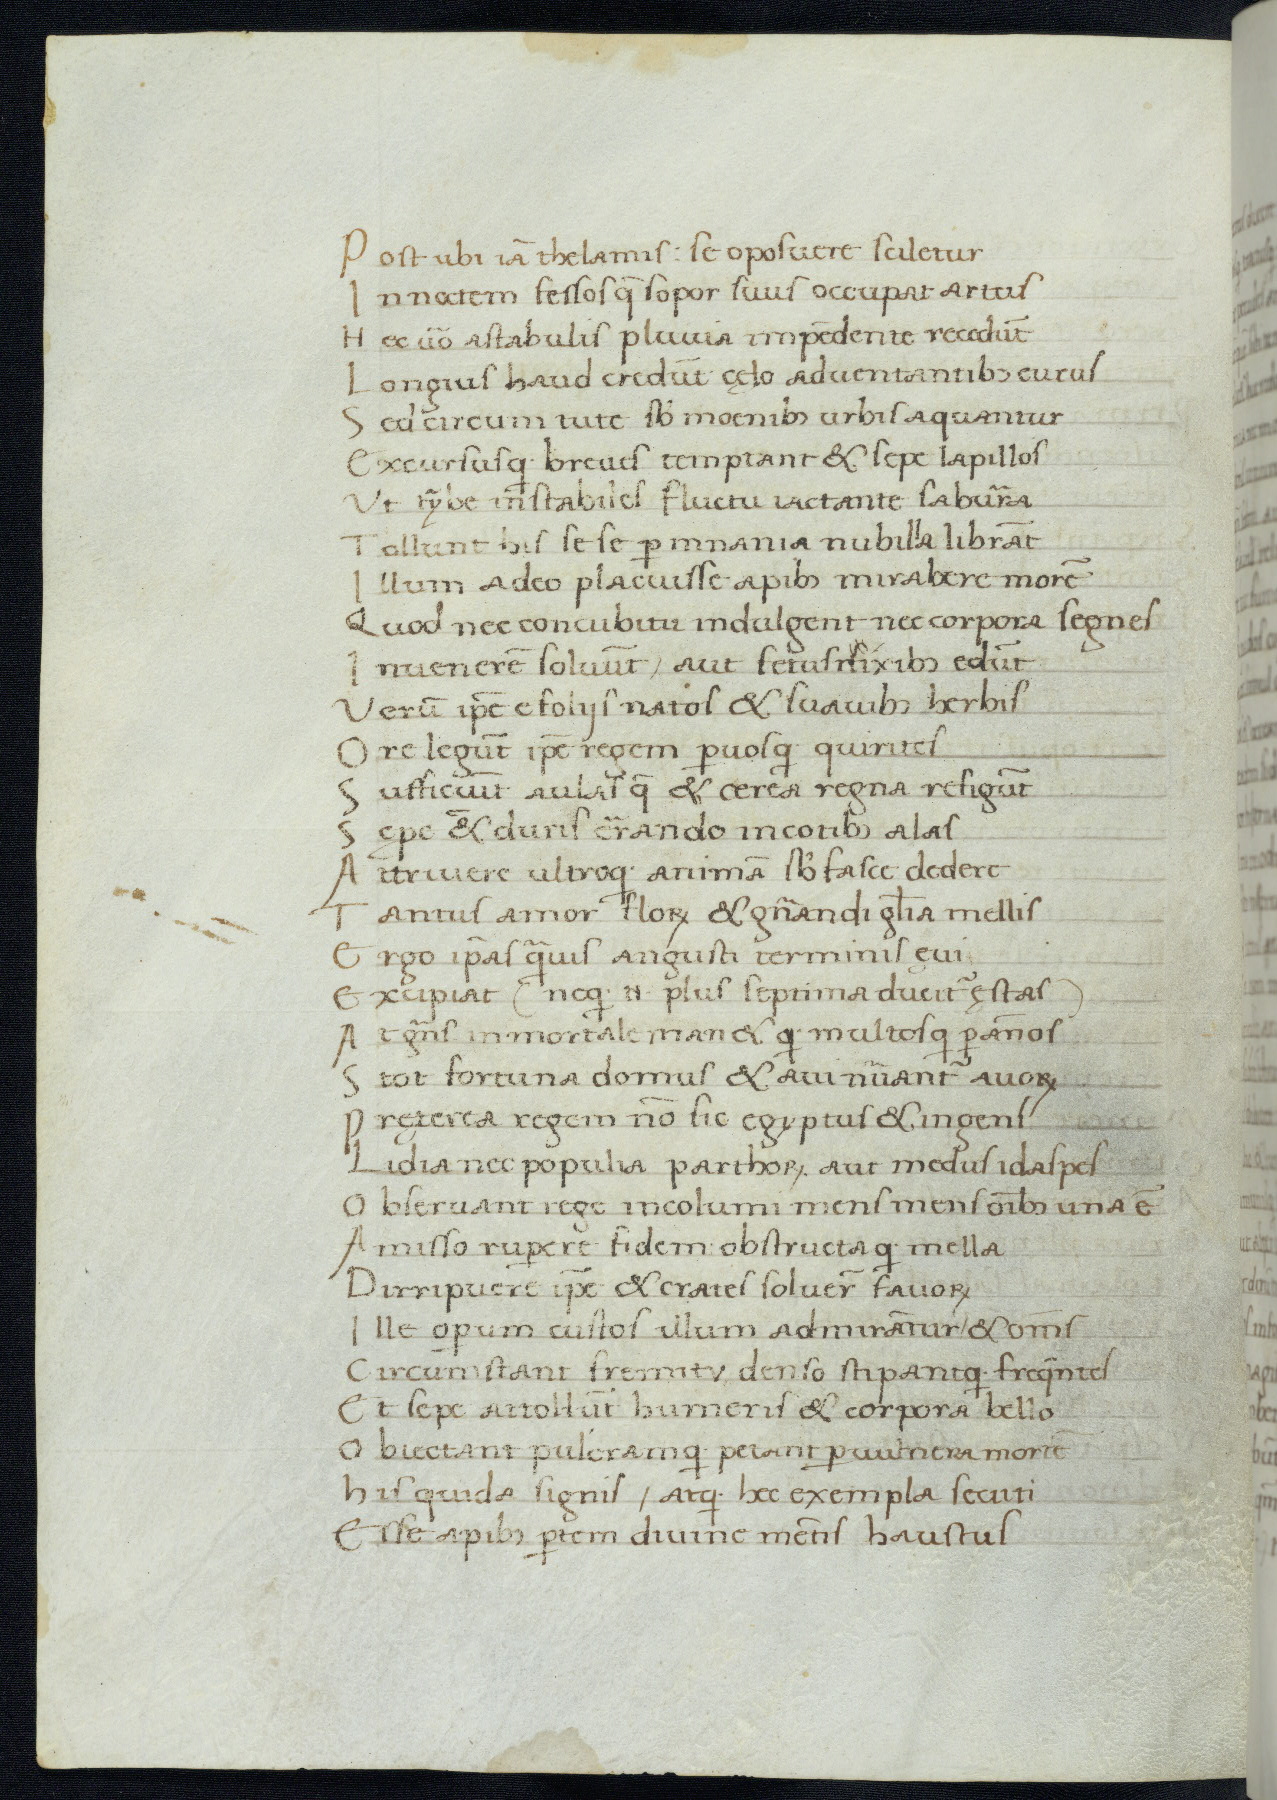 Post ubi iã thelamis: se oposuere siletur
In noctem fessosq̃ sopor suus occupat artus
Hec ũo astabulis pluuia impẽdente recedũt
Longius haud credũt cęlo aduentantibꝫ eurus
Sed circum tute sb̃ moenibꝫ urbis aquantur
Excursusq̨ breues temptant & sepe lapillos
Vt cỹbe ĩnstabiles fluctu iactante saburr̃a
Tollunt his se se ꝑ innania nubilla librãt
Illum adeo placuisse apibꝫ mirabere morẽ
Quod nec concubitu indulgent nec corpora segnes
In uenerẽ soluũt / aut fetus nixibꝫ edũt
Verũ ip̃e e folijs natos & suauibꝫ herbis
Ore legũt ip̃e regem ꝑuosq̨ quirites
Sufficiũt aulasq̃ & cerea regna refigũt
Sępe & duris ẽrrando in cotibꝫ alas
Attriuere ultroq̨ animã sb̃ fasce dedere
Tantus amor floꝝ & gñandi gl̃ia mellis
Ergo ip̃as q̃uis angusti terminis ęui
Excipiat ( neq̨ .n. plus septima ducit᷑ ęstas )
At gñs inmortale man& q̨ multosq̨ ꝑ ãnos
Stot fortuna domus & aui nũant᷑ auoꝝ
Pręterea regem nõ sic egyptus & ingens
Lidia nec populia parthoꝝ aut medus idaspes
Obseruant rege incolumi mens mens oĩbꝫ una ẽ
Amisso rupere fidem obstructaq̨ mella
Dirripuere ip̃e & crates soluer̃ fauoꝝ
Ille opum custos illum admirãtur / & om̃s
Circumstant fremitu denso stipantq̨ freq̃ntes
Et sepe attollũt humeris & corpora bello
Obiectant pulcramq̨ petant ꝑ uulnera mortẽ
his quida signis / atq̨ hec exempla secuti
Esse apibꝫ ꝑtem diuine mẽtis haustus